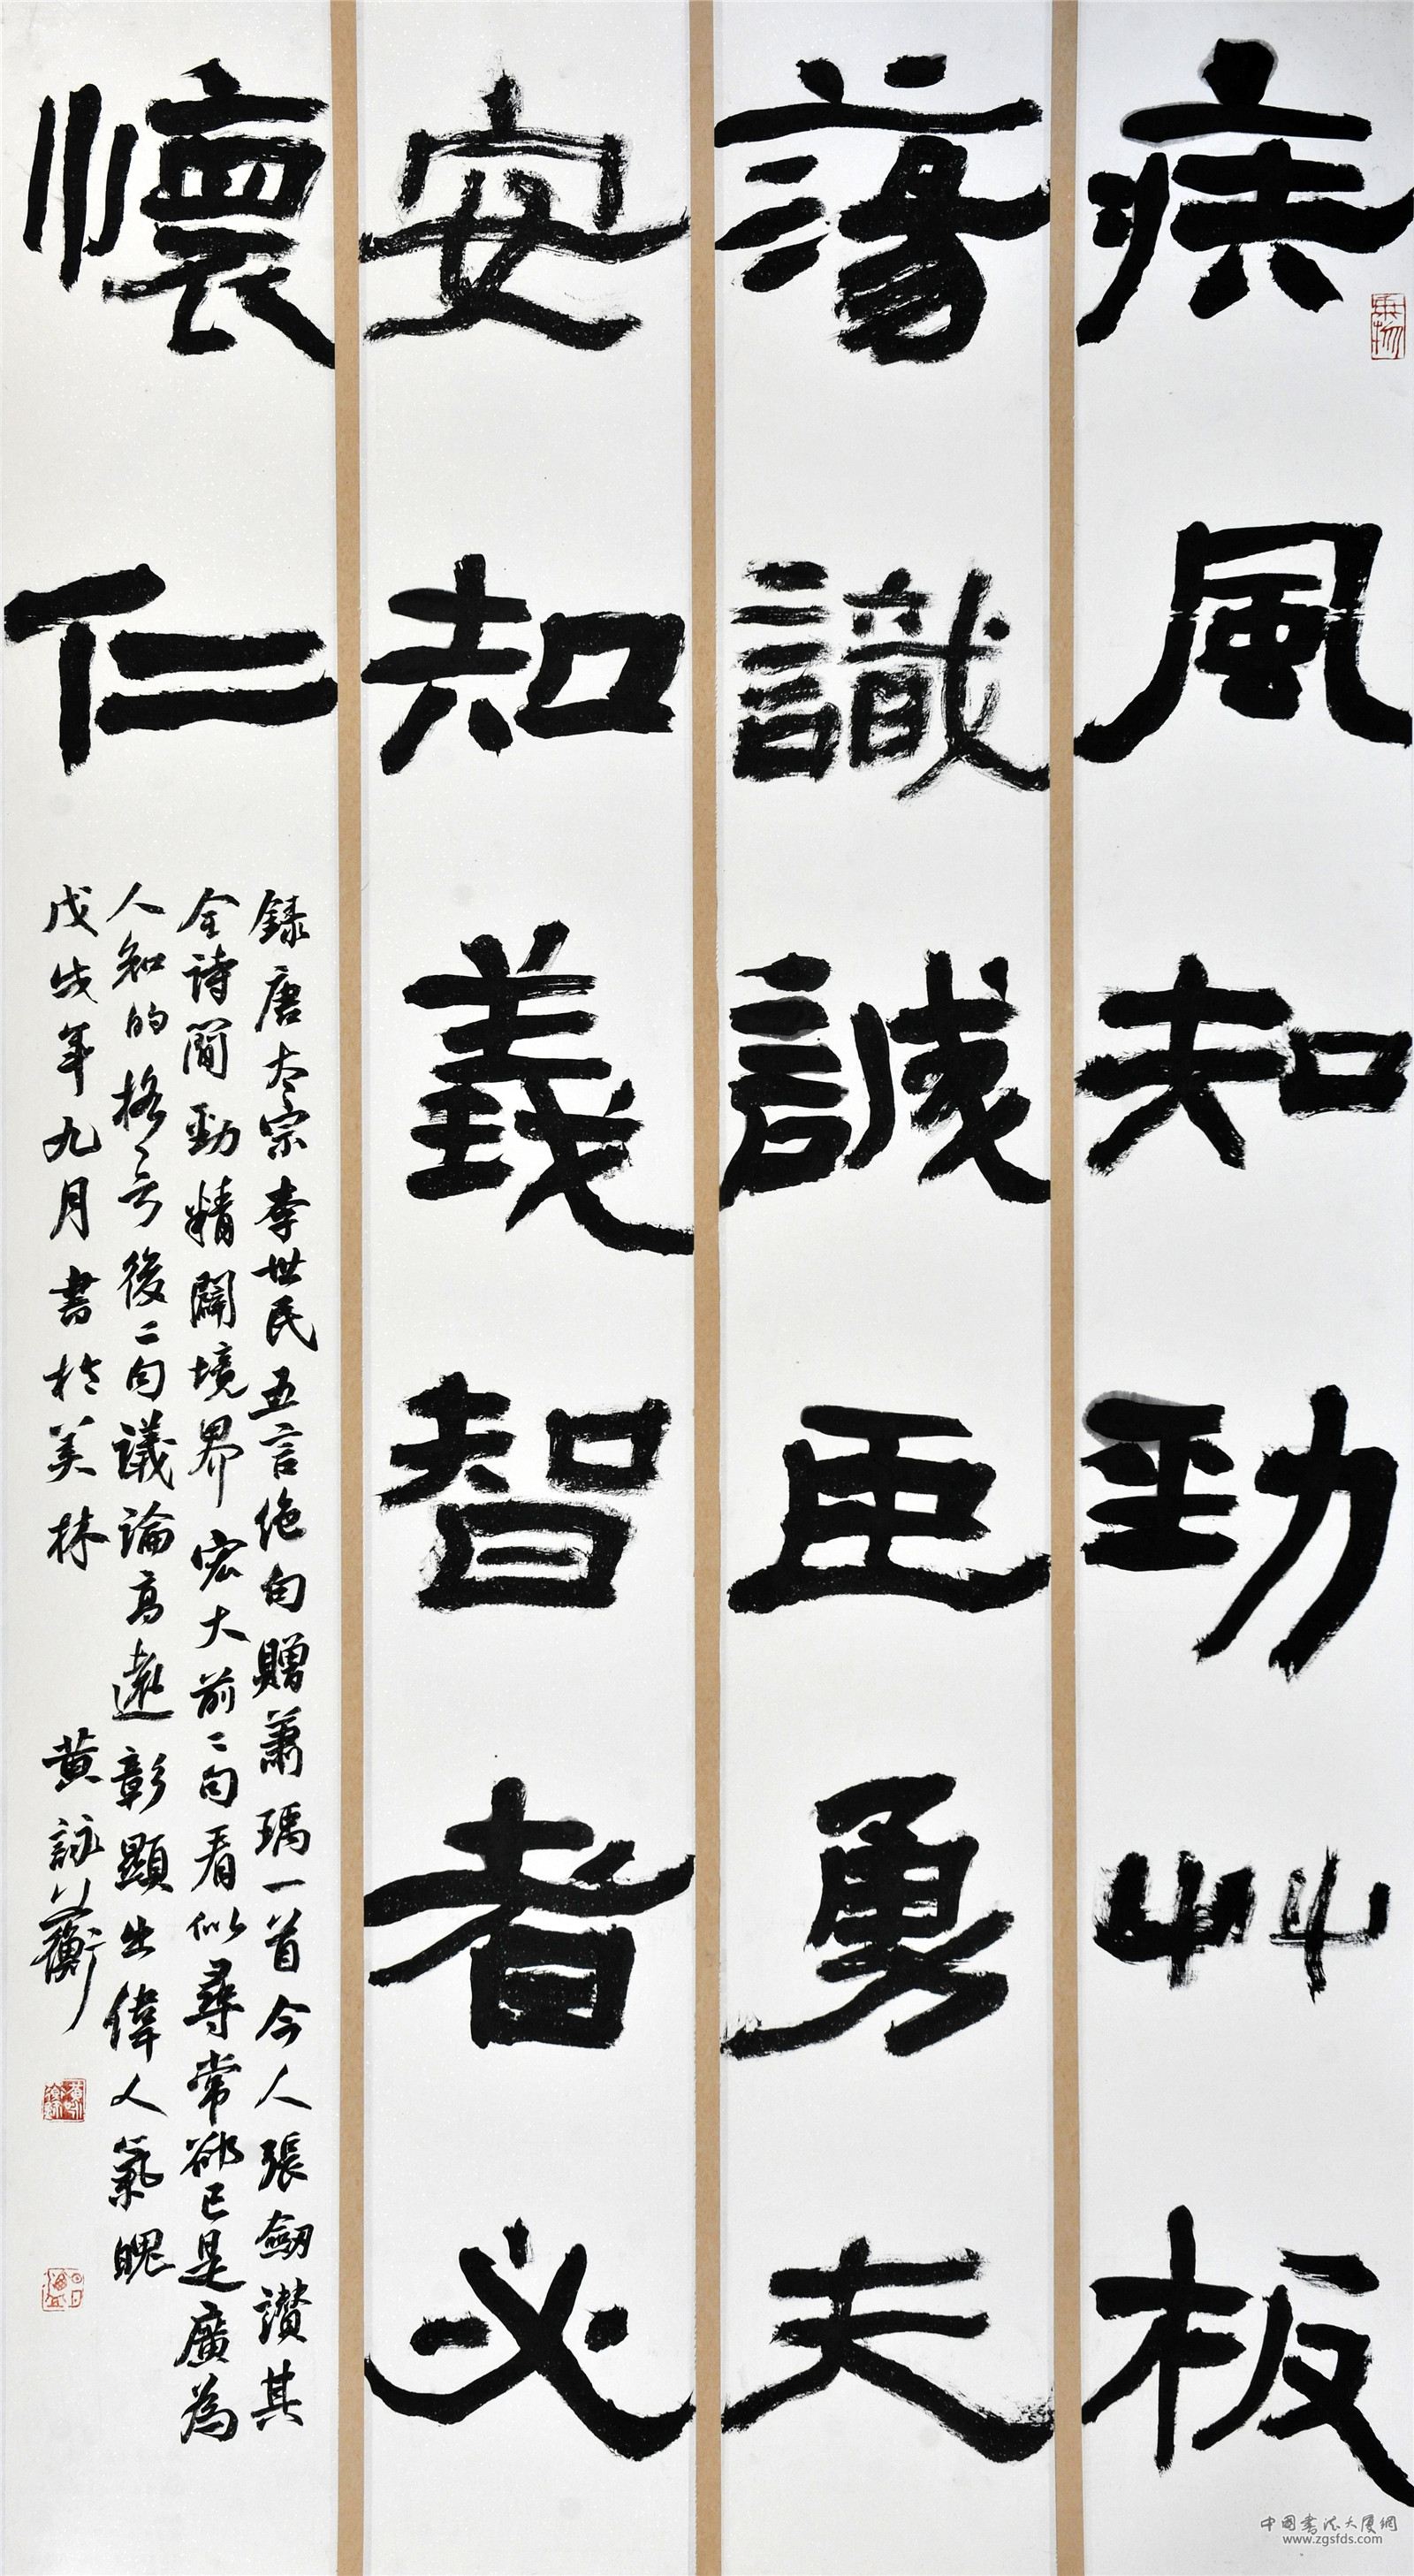 疾風知勁艸板
蕩識誠臣勇夫
安知義智者必
懷仁
録唐太宗李世民五言绝句贈蕭瑀一首今人張劔讃其
全詩簡勁精闢境界宏大前二句看似尋常卻已是廣為
人知的格言後二句議論高遠彰顯出偉人氣魄
戊戌年九月書於美林 黄詠蘅
中国書法大厦網
www.zgsfds.com